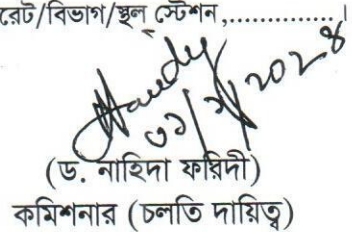 রেট/বিভাগ/স্থল স্টেশন,...............।
(ড. নাহিদা ফরিদী)
কমিশনার (চলতি দায়িত্ব)